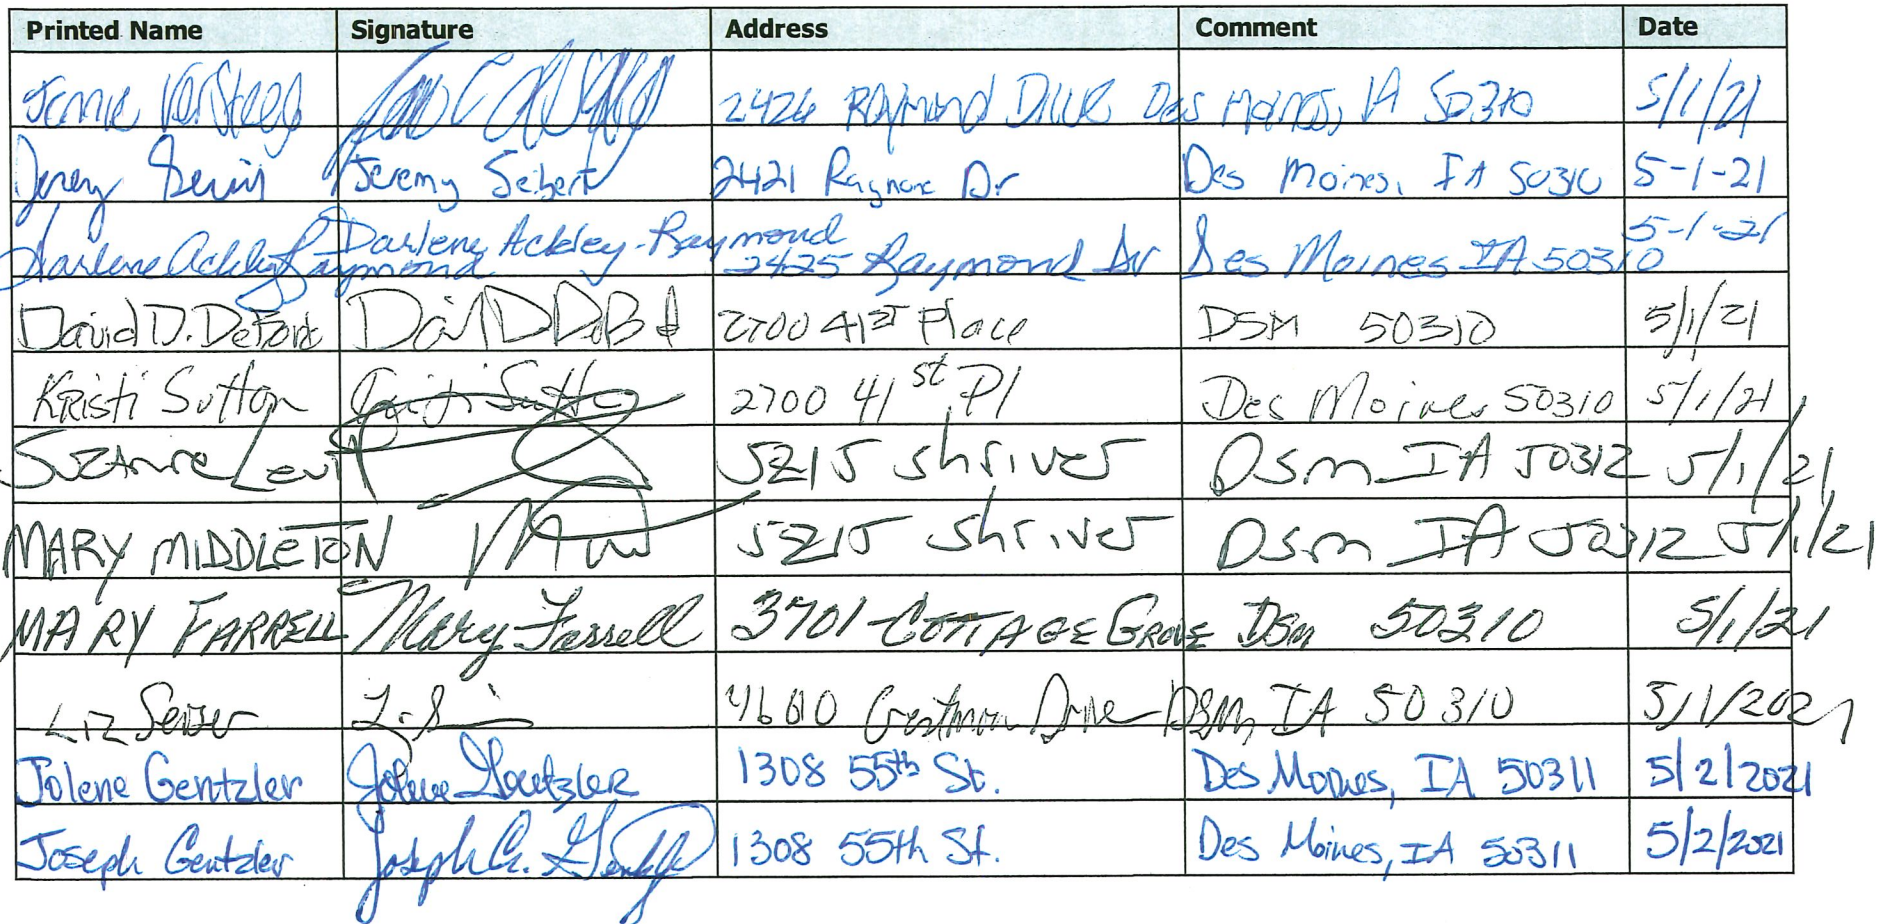 Printed Name Signature Address Comment Date
Jennie VerSteeg 2426 Raymond Drive Des Moines, IA 50310 5/1/21
Jeremy Jeremy Seibert 2421 Dr Des Moines, IA 50310 5-1-21
Darlene Ackley-Raymond Darlene Ackley-Raymond 2425 Raymond Dr Des Moines IA 50310 5-1-21
David D. 2700 41ST Place DSM 50310 5/1/21
Kristi Sutton Kristi Sutton 2700 41st Pl Des Moines 50310 5/1/21
Suzanne Levitt 5215 Shriver Dsm IA 50312 5/1/21
MARY MIDDLETON 5215 Shriver Dsm IA 50312 5/1/21
MARY FARRELL Mary Farrell 3701 COTTAGE GROVE DSM 50310 5/1/21
Liz Drive DSM, IA 50310 5/1/2021
Jolene Gentzler Jolene Gentzler 1308 55th St. Des Moines, IA 50311 5/2/2021
Joseph Gentzler Joseph G. Gentzler 1308 55th St. Des Moines, IA 50311 5/2/2021